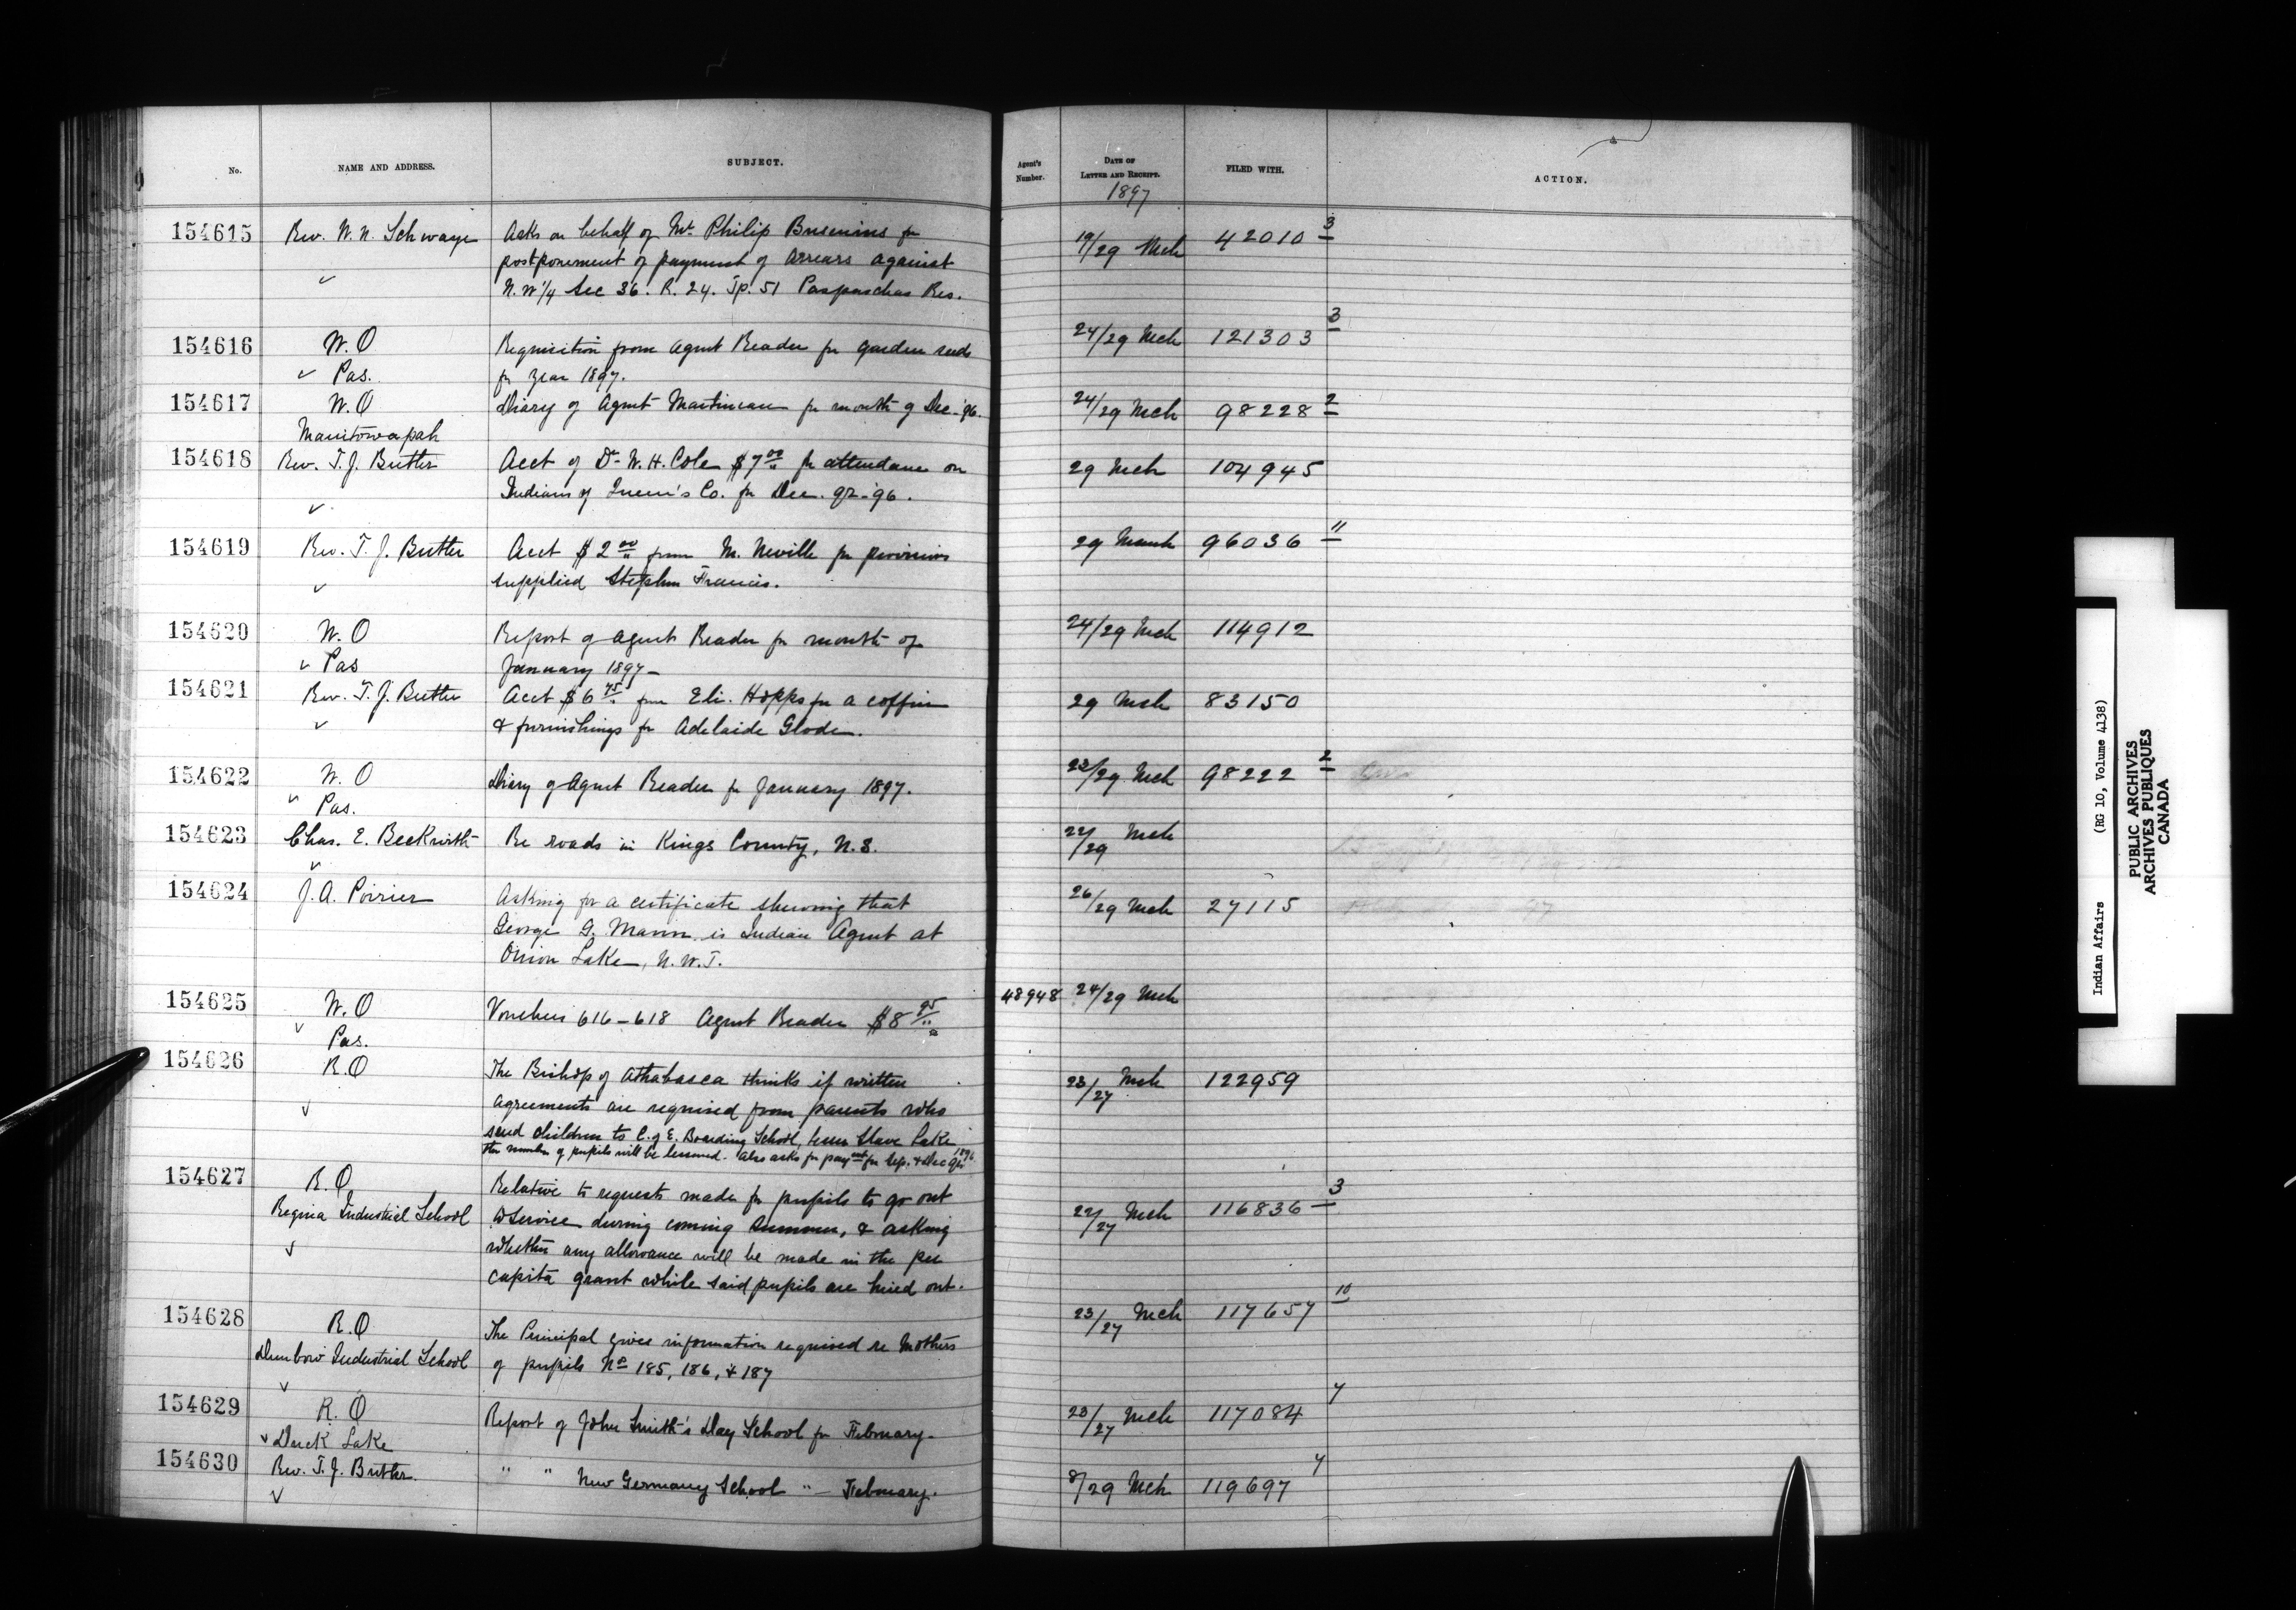 No. NAME AND ADDRESS. SUBJECT. Agent's Number. DATE OF LETTER AND RECEIPT. FILED WITH. ACTION.
1897
154615 Rev. W. N. Schwaye Asks on behalf of Mr Philip for 19/29 Mch 42010 3
postponement of payment of arrears against
✓ N.W 1/4 Sec 36. R. 24. Tp. 51 Paspaschas Res.
154616 W.O Requisition from Agent Reader for garden seeds 24/29 Mch 121303 3
✓ Pas. for year 1897.
154617 W.O Diary of Agent Martineau for month of Dec. '96. 24/29 Mch 98228 2
Manitowapah
154618 Rev. T. J. Butler Acct of Dr W. H. Cole $7 00 for attendance on 29 Mch 104945
Indians of Queen's Co. for Dec. qr. '96.
✓
154619 Rev. T. J. Butler Acct $2 00 from M. Neville for provisions 29 March 96036 11
✓ supplied Stephen Francis.
154620 W.O Report of Agent Reader for month of 24/29 Mch 114912
✓ Pas January 1897 —
154621 Rev. T. J. Butler Acct $6 75 from Eli. Hopps for a coffin 29 Mch 83150
✓ & furnishings for Adelaide Glode.
154622 W.O Diary of Agent Reader for January 1897. 23/29 Mch 98222 2
✓ Pas.
154623 Chas. E. Beckwith Re roads in Kings County, N.S. 22/29 Mch
✓
154624 J. A. Poirier Asking for a certificate shewing that 26/29 Mch 27115
George G. Mann is Indian Agent at
Onion Lake, N.W.T.
154625 W.O Vouchers 616 – 618 Agent Reader $8 95 48948 24/29 Mch
✓ Pas.
154626 R.O The Bishop of Athabasca thinks if written 23/27 Mch 122959
✓ agreements are required from parents who
send children to C. of E. Boarding School, Lesser Slave Lake
the number of pupils will be lessened. Also asks for paymt for Sep. & Dec qrs 1896.
154627 R.O Relative to requests made for pupils to go out 22/27 Mch 116836 3
Regina Industrial School to service during coming summer, & asking
✓ whether any allowance will be made in the per
capita grant while said pupils are hired out.
154628 R.O The Principal gives information required re Mothers 23/27 Mch 117657 10
Dunbow Industrial School of pupils No 185, 186, & 187
✓
154629 R.O Report of John Smith's Day School for February. 23/27 Mch 117084 7
✓ Duck Lake
154630 Rev. T. J. Butler. " " New Germany School " — February. 8/29 Mch 119697 7
✓
Indian Affairs (RG 10, Volume 4138)
PUBLIC ARCHIVES
ARCHIVES PUBLIQUES
CANADA